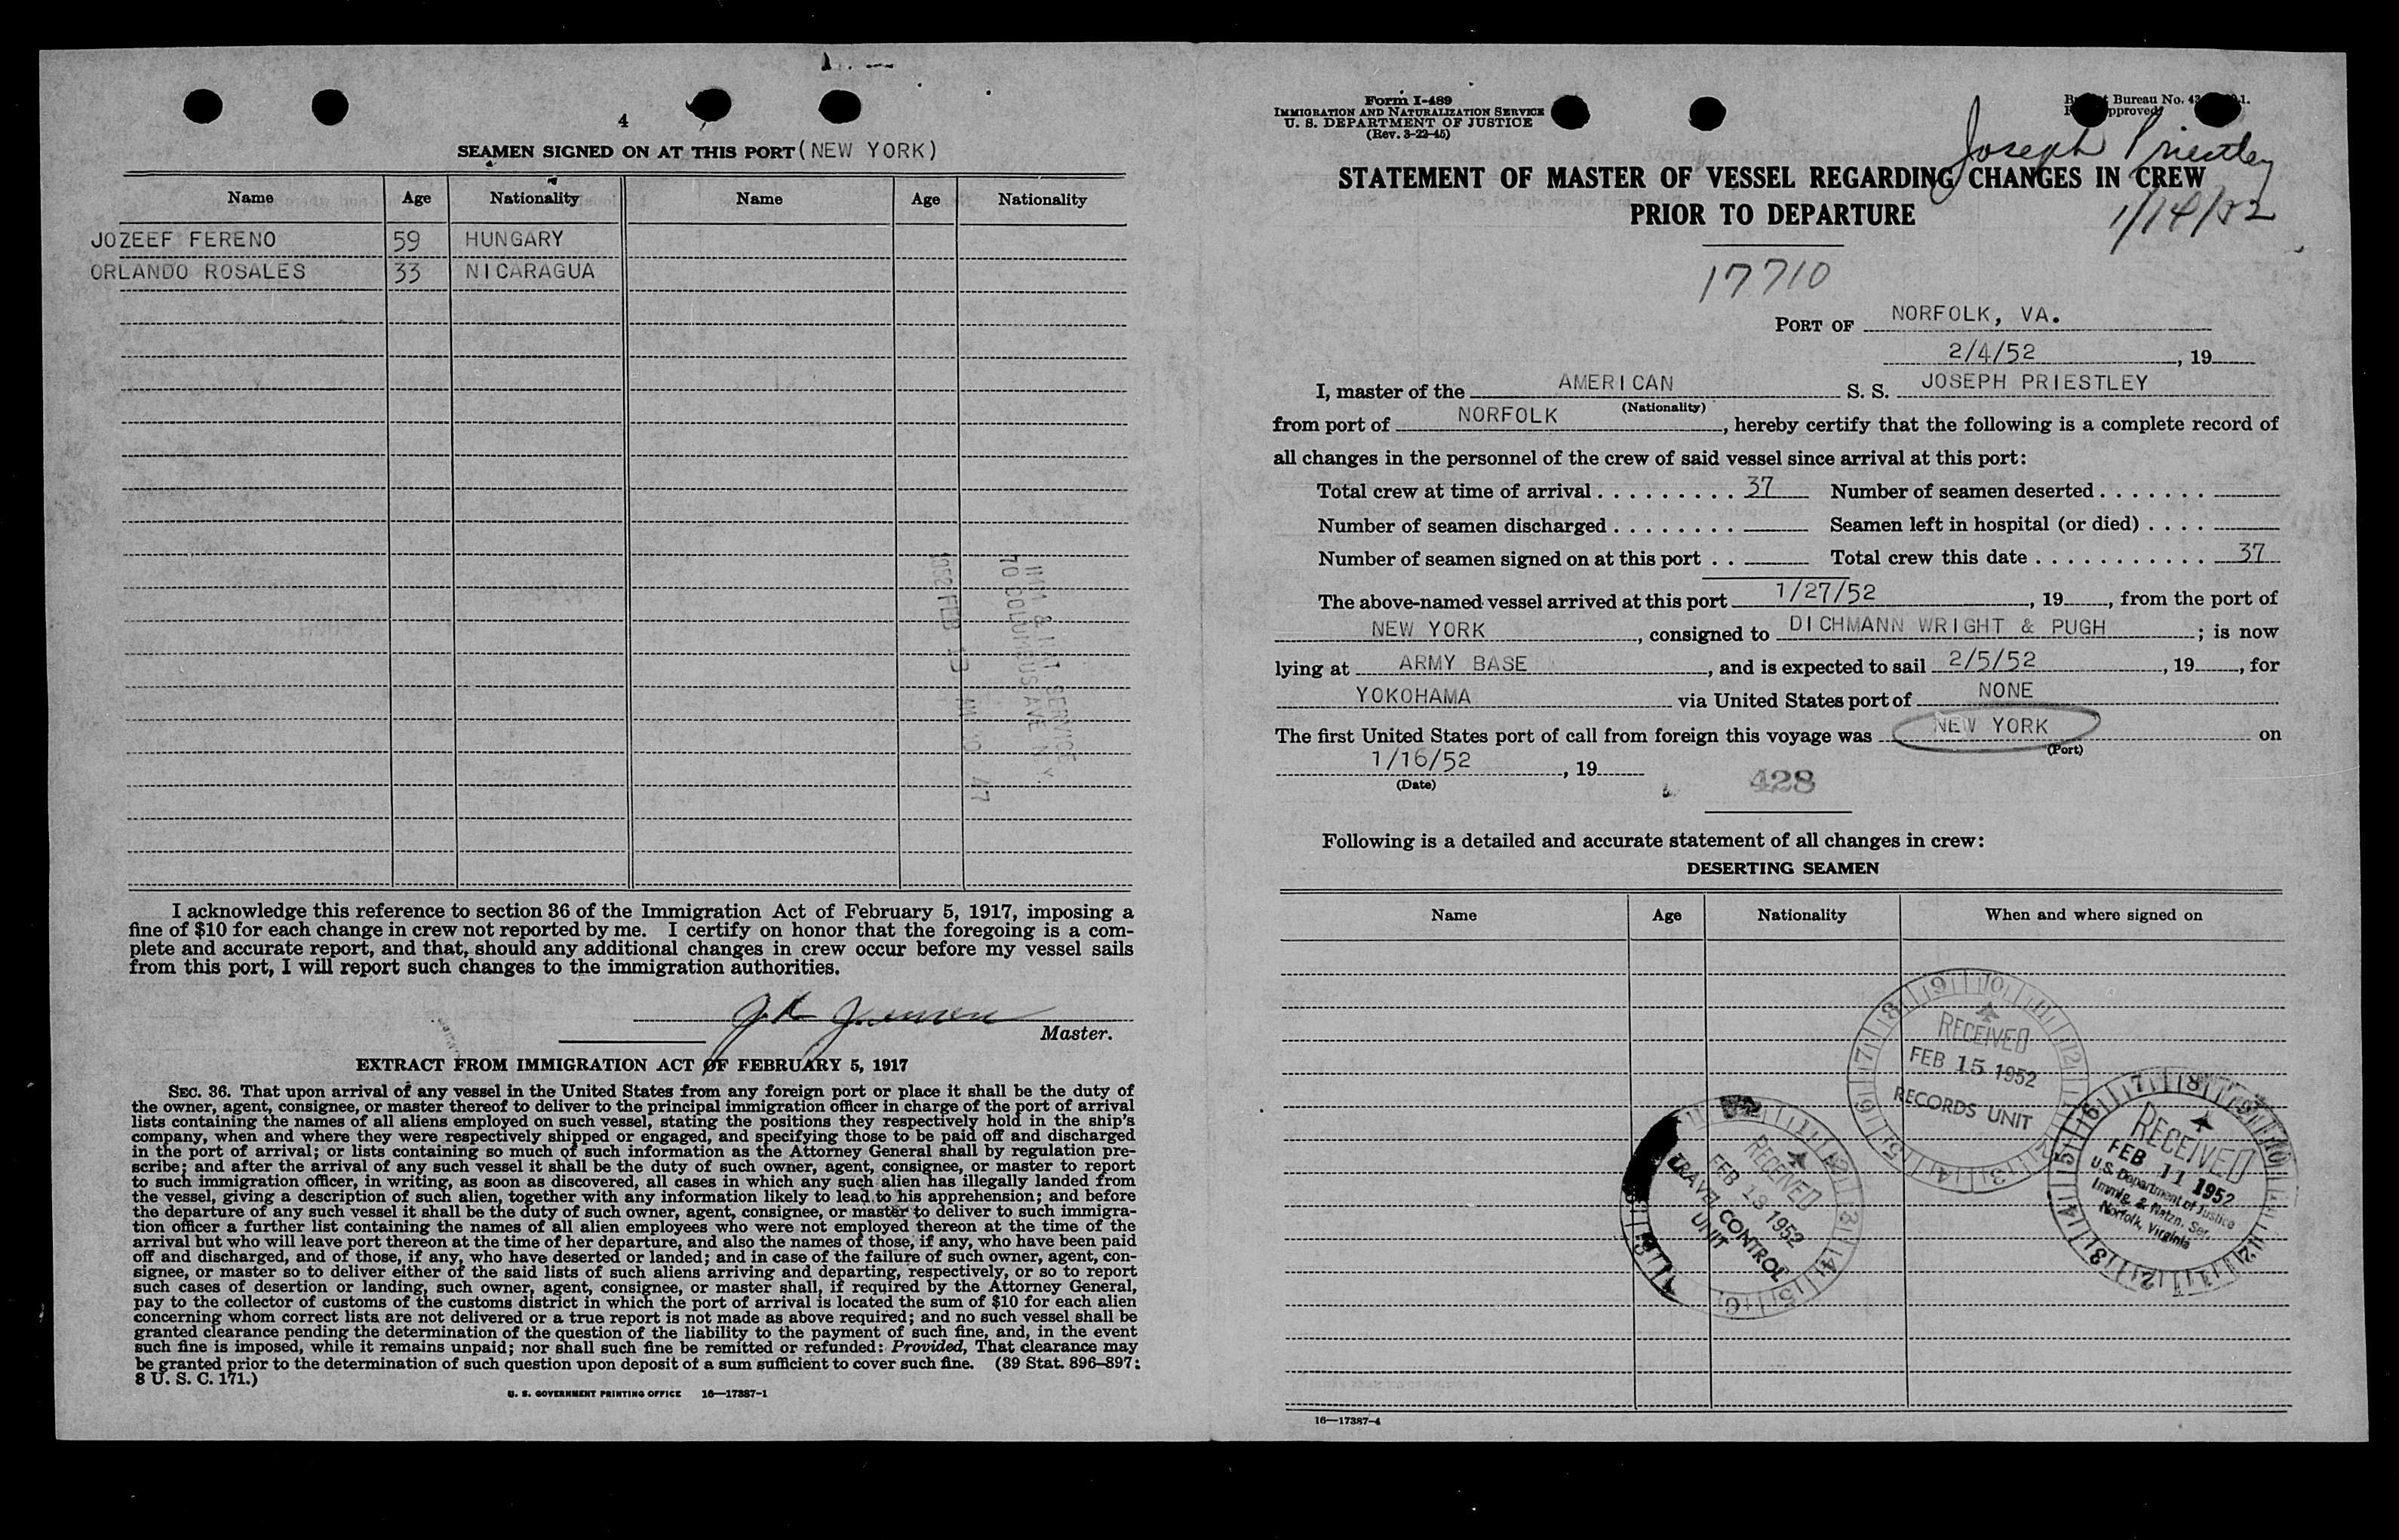 4
SEAMEN SIGNED ON AT THIS PORT (NEW YORK)
Name Age Nationality Name Age Nationality
JOZEEF FERENO 59 HUNGARY
ORLANDO ROSALES 33 NICARAGUA
IMM & NAT SERVICE
70 COLUMBUS AVE N.Y.
1952 FEB 13 AM 10 47
I acknowledge this reference to section 36 of the Immigration Act of February 5, 1917, imposing a
fine of $10 for each change in crew not reported by me. I certify on honor that the foregoing is a com-
plete and accurate report, and that, should any additional changes in crew occur before my vessel sails
from this port, I will report such changes to the immigration authorities.
Master.
EXTRACT FROM IMMIGRATION ACT OF FEBRUARY 5, 1917
SEC. 36. That upon arrival of any vessel in the United States from any foreign port or place it shall be the duty of
the owner, agent, consignee, or master thereof to deliver to the principal immigration officer in charge of the port of arrival
lists containing the names of all aliens employed on such vessel, stating the positions they respectively hold in the ship's
company, when and where they were respectively shipped or engaged, and specifying those to be paid off and discharged
in the port of arrival; or lists containing so much of such information as the Attorney General shall by regulation pre-
scribe; and after the arrival of any such vessel it shall be the duty of such owner, agent, consignee, or master to report
to such immigration officer, in writing, as soon as discovered, all cases in which any such alien has illegally landed from
the vessel, giving a description of such alien, together with any information likely to lead to his apprehension; and before
the departure of any such vessel it shall be the duty of such owner, agent, consignee, or master to deliver to such immigra-
tion officer a further list containing the names of all alien employees who were not employed thereon at the time of the
arrival but who will leave port thereon at the time of her departure, and also the names of those, if any, who have been paid
off and discharged, and of those, if any, who have deserted or landed; and in case of the failure of such owner, agent, con-
signee, or master so to deliver either of the said lists of such aliens arriving and departing, respectively, or so to report
such cases of desertion or landing, such owner, agent, consignee, or master shall, if required by the Attorney General,
pay to the collector of customs of the customs district in which the port of arrival is located the sum of $10 for each alien
concerning whom correct lists are not delivered or a true report is not made as above required; and no such vessel shall be
granted clearance pending the determination of the question of the liability to the payment of such fine, and, in the event
such fine is imposed, while it remains unpaid; nor shall such fine be remitted or refunded: Provided, That clearance may
be granted prior to the determination of such question upon deposit of a sum sufficient to cover such fine. (39 Stat. 896–897;
8 U. S. C. 171.)
U. S. GOVERNMENT PRINTING OFFICE 16—17387-1
Form I-489
IMMIGRATION AND NATURALIZATION SERVICE
U. S. DEPARTMENT OF JUSTICE
(Rev. 3-22-45)
Bureau No.
Joseph Priestley
1/14/52
STATEMENT OF MASTER OF VESSEL REGARDING CHANGES IN CREW
PRIOR TO DEPARTURE
17710
PORT OF NORFOLK, VA.
2/4/52, 19
I, master of the AMERICAN S. S. JOSEPH PRIESTLEY
(Nationality)
from port of NORFOLK, hereby certify that the following is a complete record of
all changes in the personnel of the crew of said vessel since arrival at this port:
Total crew at time of arrival . . . . . . . . . 37 Number of seamen deserted . . . . . . .
Number of seamen discharged . . . . . . . . Seamen left in hospital (or died) . . . .
Number of seamen signed on at this port . . Total crew this date . . . . . . . . . . . 37
The above-named vessel arrived at this port 1/27/52, 19, from the port of
NEW YORK, consigned to DICHMANN WRIGHT & PUGH; is now
lying at ARMY BASE, and is expected to sail 2/5/52, 19, for
YOKOHAMA via United States port of NONE
The first United States port of call from foreign this voyage was NEW YORK on
(Port)
1/16/52, 19
(Date)
428
Following is a detailed and accurate statement of all changes in crew:
DESERTING SEAMEN
Name Age Nationality When and where signed on
RECEIVED
FEB 15 1952
RECORDS UNIT
RECEIVED
FEB 13 1952
TRAVEL CONTROL
UNIT
RECEIVED
FEB 11 1952
U.S. Department of Justice
Immig. & Natzn. Ser.
Norfolk, Virginia
16—17387-4